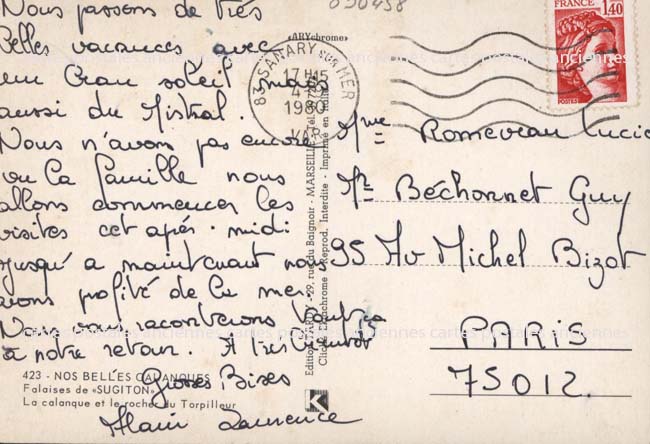 Nous passons de très
Belles vacances avec
un Grand soleil mais
aussi du Mistral.
Nous n'avons pas encore
vu la famille nous
allons commencer les
visites cet après-midi
jusqu'a maintenant nous
avons profité de la mer
Nous vous raconterons tout ça
à notre retour. A très bientôt
Grosses Bises
Alain Laurence
423 - NOS BELLES CALANQUES
Falaises de «SUGITON»
La calanque et le rocher du Torpilleur
«ARYchrome»
Editions d'Art
29, rue du Baignoir - MARSEILLE - Tél.
Reprod. Interdite - Imprimé en
K
090458
83 SANARY SUR MER
17 H 15
1980
VAR
FRANCE
1,40
POSTES
Mme Lucie
Mr Béchonnet Guy
95 Av Michel Bizot
PARIS
75012.
cartes postales anciennes cartes postales anciennes
cartes postales anciennes cartes postales anciennes